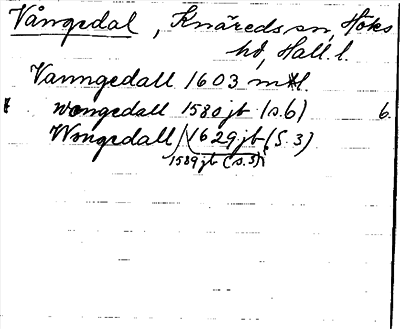 Vångedal, Knäreds sn, Höks
hd, Hall. l.
Vanngedall 1603 ml.
wongedall 1580 jb (s.6) 6.
Wongedall 1629 jb (S.3)
1589 jb (s.5)